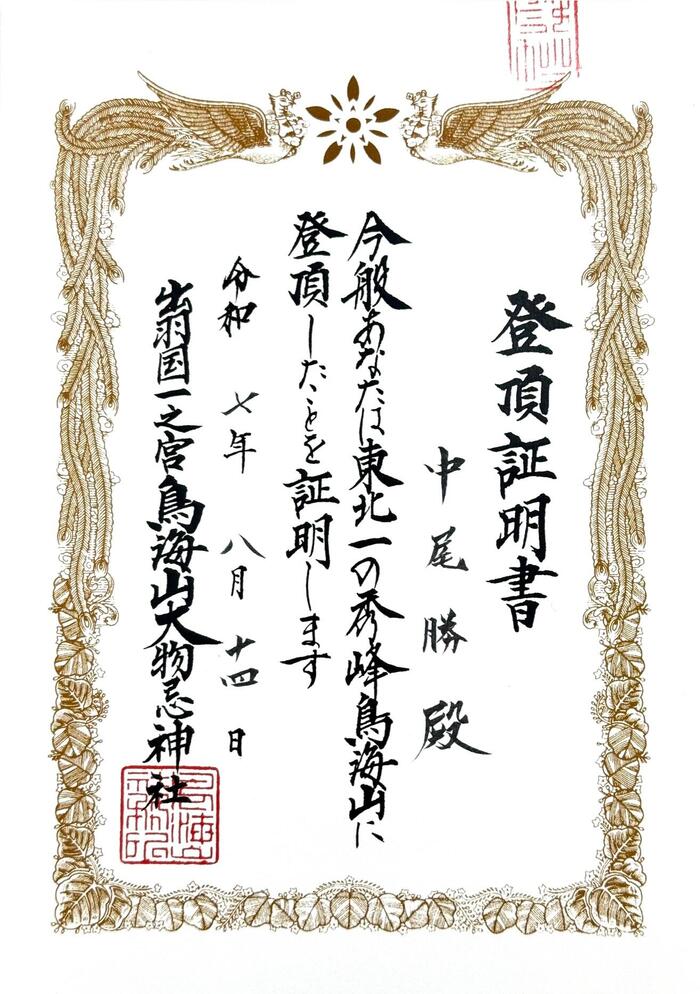 登頂証明書
中尾勝殿
今般あなたは東北一の秀峰鳥海山に
登頂したことを証明します
令和七年八月十四日
出羽国一之宮鳥海山大物忌神社